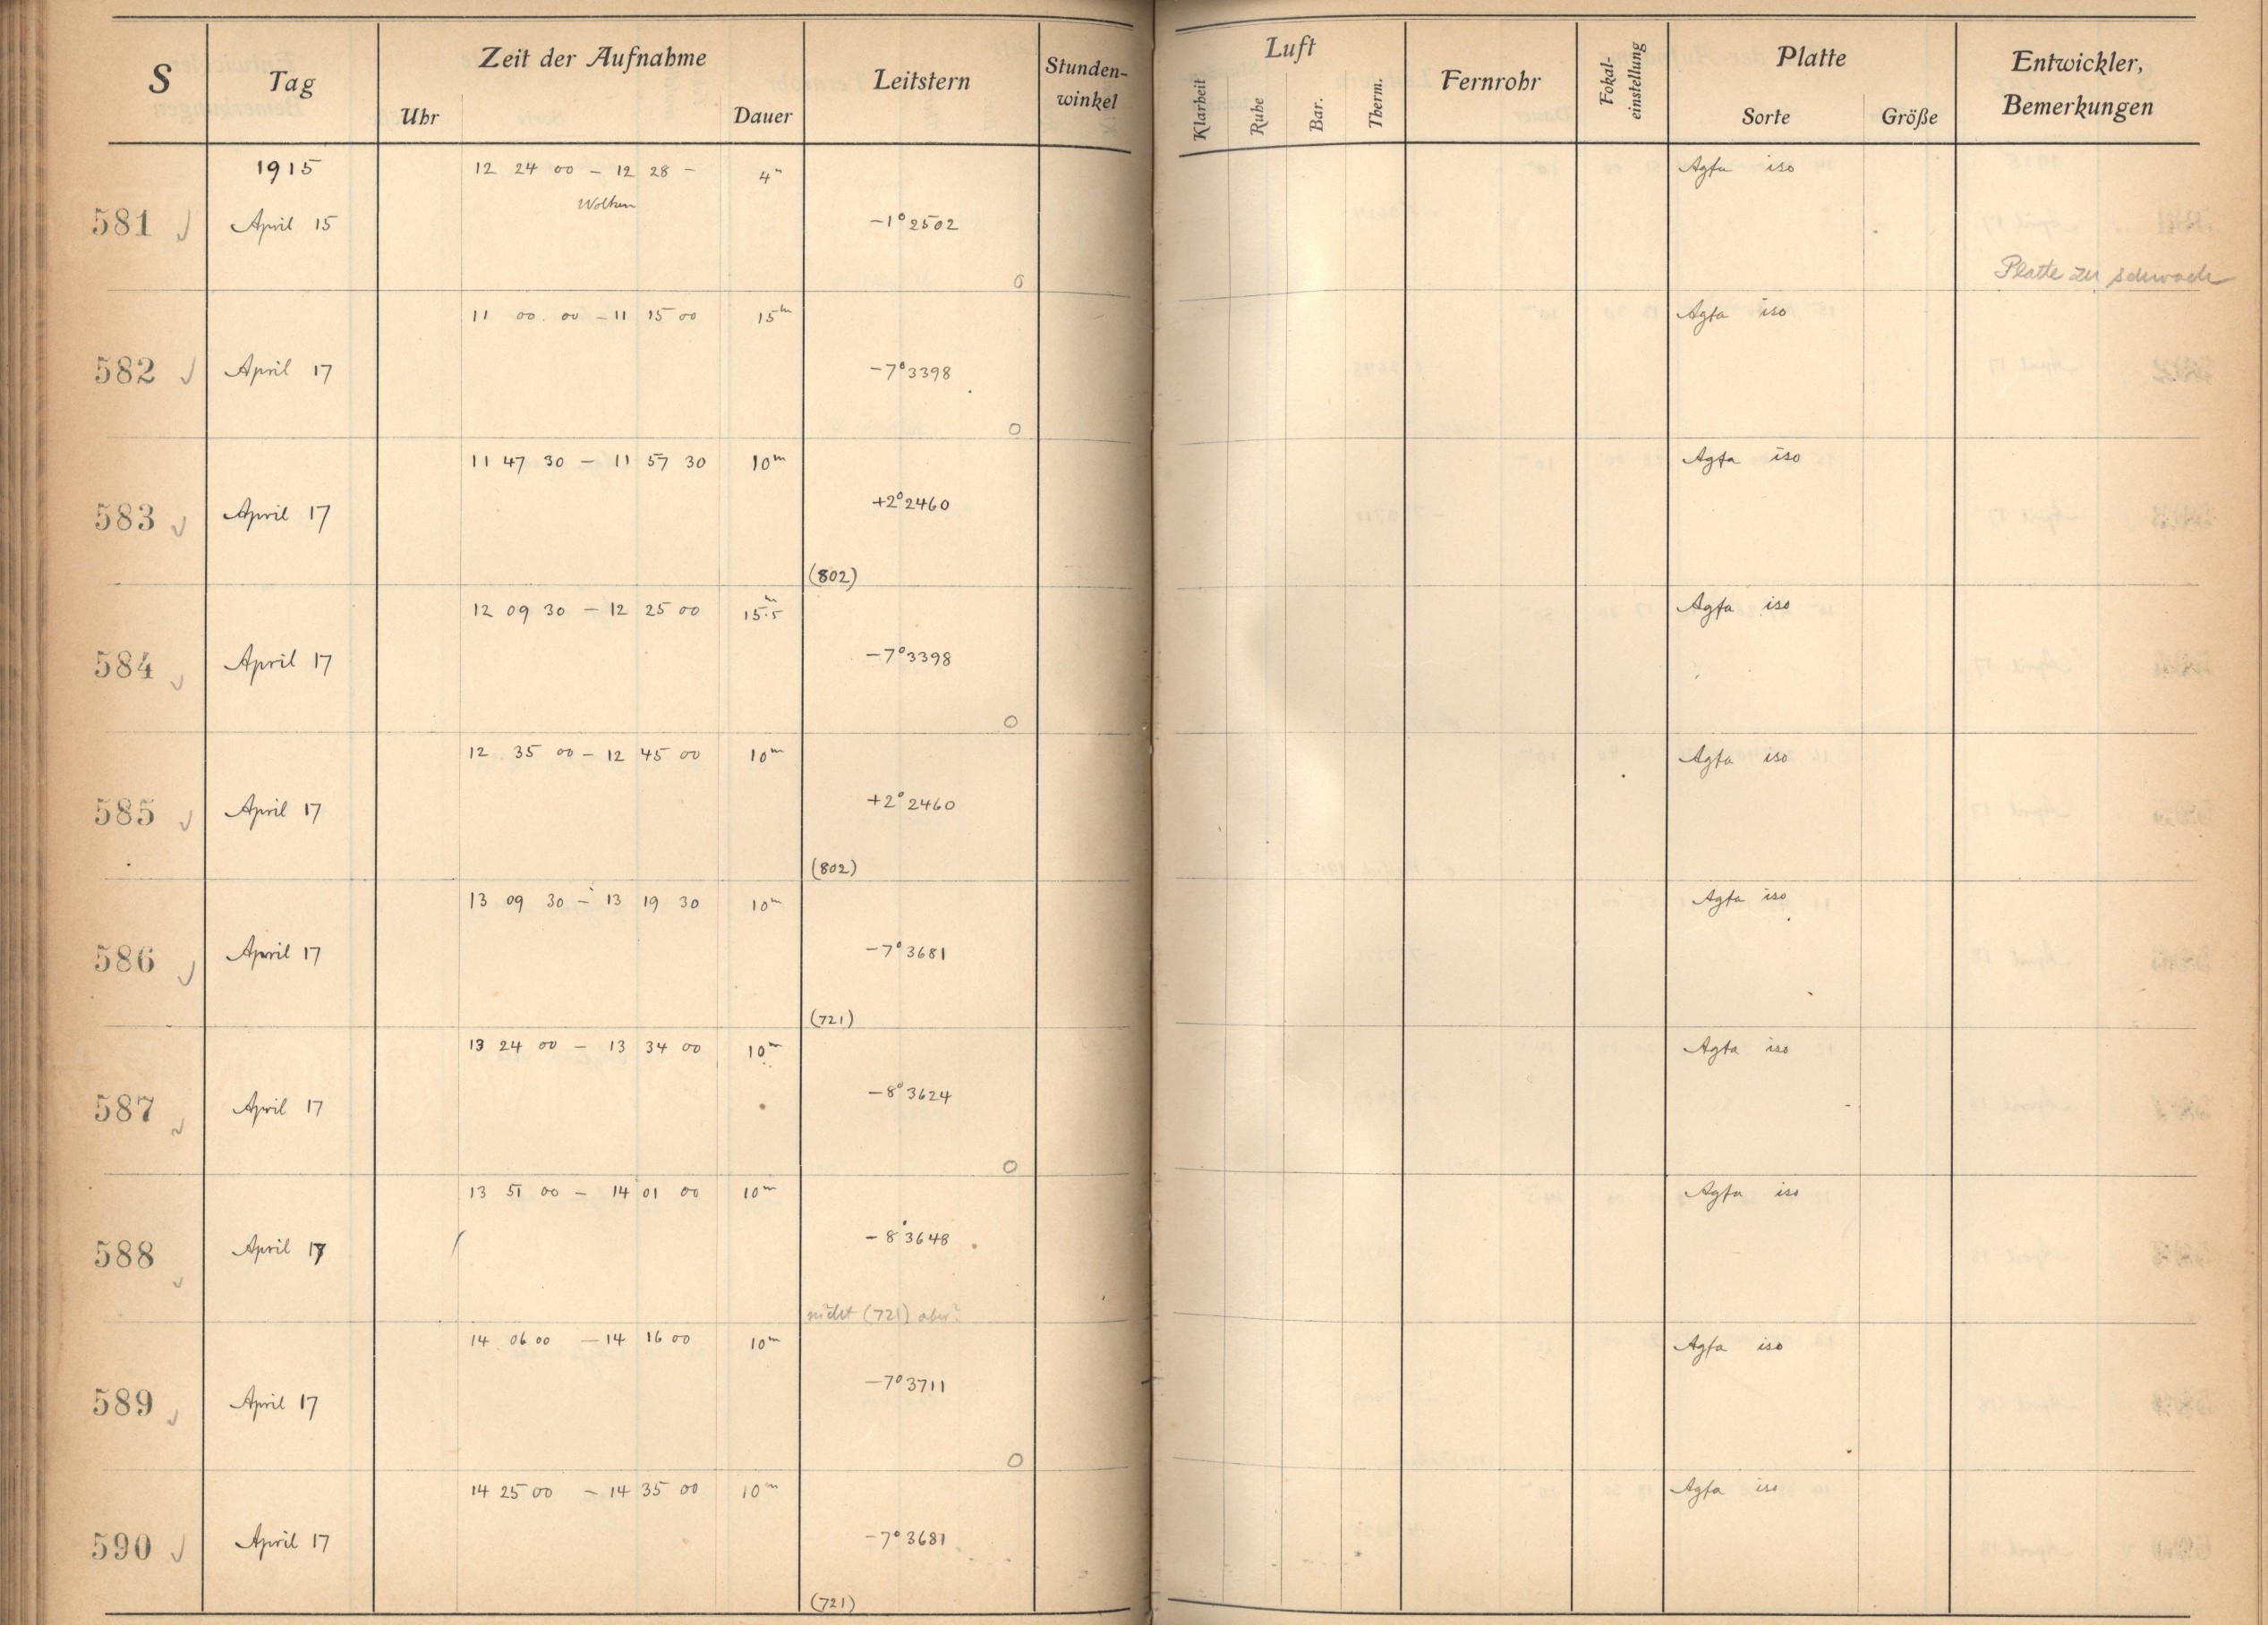 S Tag Zeit der Aufnahme Leitstern Stunden-
winkel Luft Fernrohr Fokal-
einstellung Platte Entwickler,
Bemerkungen
Uhr Dauer Klarheit Ruhe Bar. Therm. Sorte Größe
1915 12 24 00 – 12 28 – 4m Agfa iso
Wolken
581 April 15 –1° 2502
o Platte zu schwach
11 00 00 – 11 15 00 15m Agfa iso
582 April 17 –7° 3398
o
11 47 30 – 11 57 30 10m Agfa iso
583 April 17 +2° 2460
(802)
12 09 30 – 12 25 00 15m.5 Agfa iso
584 April 17 –7° 3398
o
12 35 00 – 12 45 00 10m Agfa iso
585 April 17 +2° 2460
(802)
13 09 30 – 13 19 30 10m Agfa iso
586 April 17 –7° 3681
(721)
13 24 00 – 13 34 00 10m Agfa iso
587 April 17 –8° 3624
o
13 51 00 – 14 01 00 10m Agfa iso
588 April 17 –8° 3648
nicht (721) aber?
14 06 00 – 14 16 00 10m Agfa iso
589 April 17 –7° 3711
o
14 25 00 – 14 35 00 10m Agfa iso
590 April 17 –7° 3681
(721)